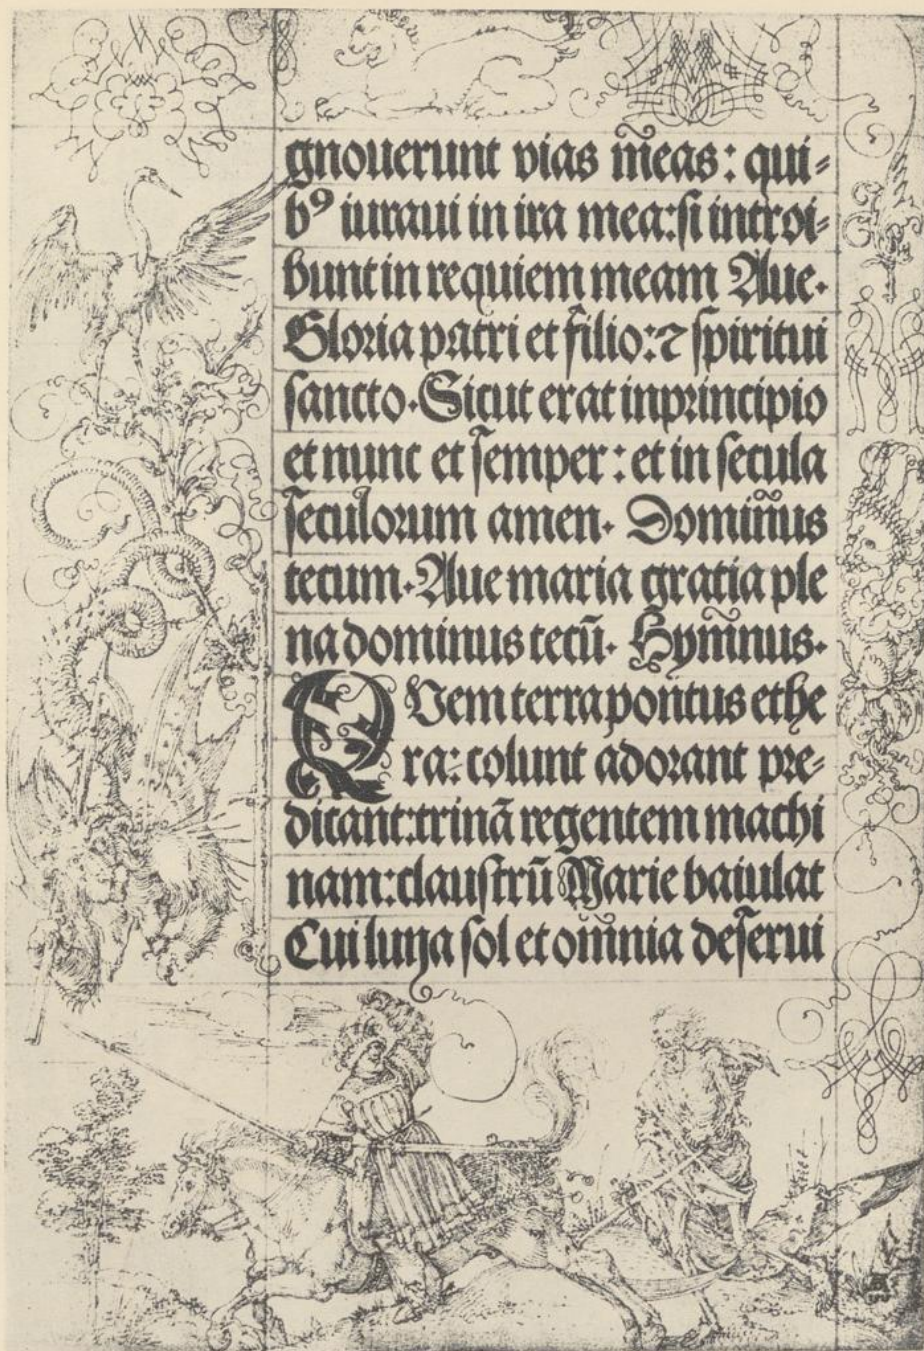 gnouerunt vias m̃eas: qui-
bꝰ iuraui in ira mea: si introi-
bunt in requiem meam Aue.
Gloria patri et f̃ilio: ⁊ spiritui
sancto. Sicut erat inprincipio
et nunc et s̃emper: et in secula
s̃eculorum amen. Domiñus
tecum. Aue maria gratia ple
na dominus tecū. Hym̃nus.
QVem terra pontus ethe
ra: colunt adorant pre-
dicant: trinā regentem machi
nam: claustrū Marie baiulat
Cui luna sol et om̃nia des̃erui